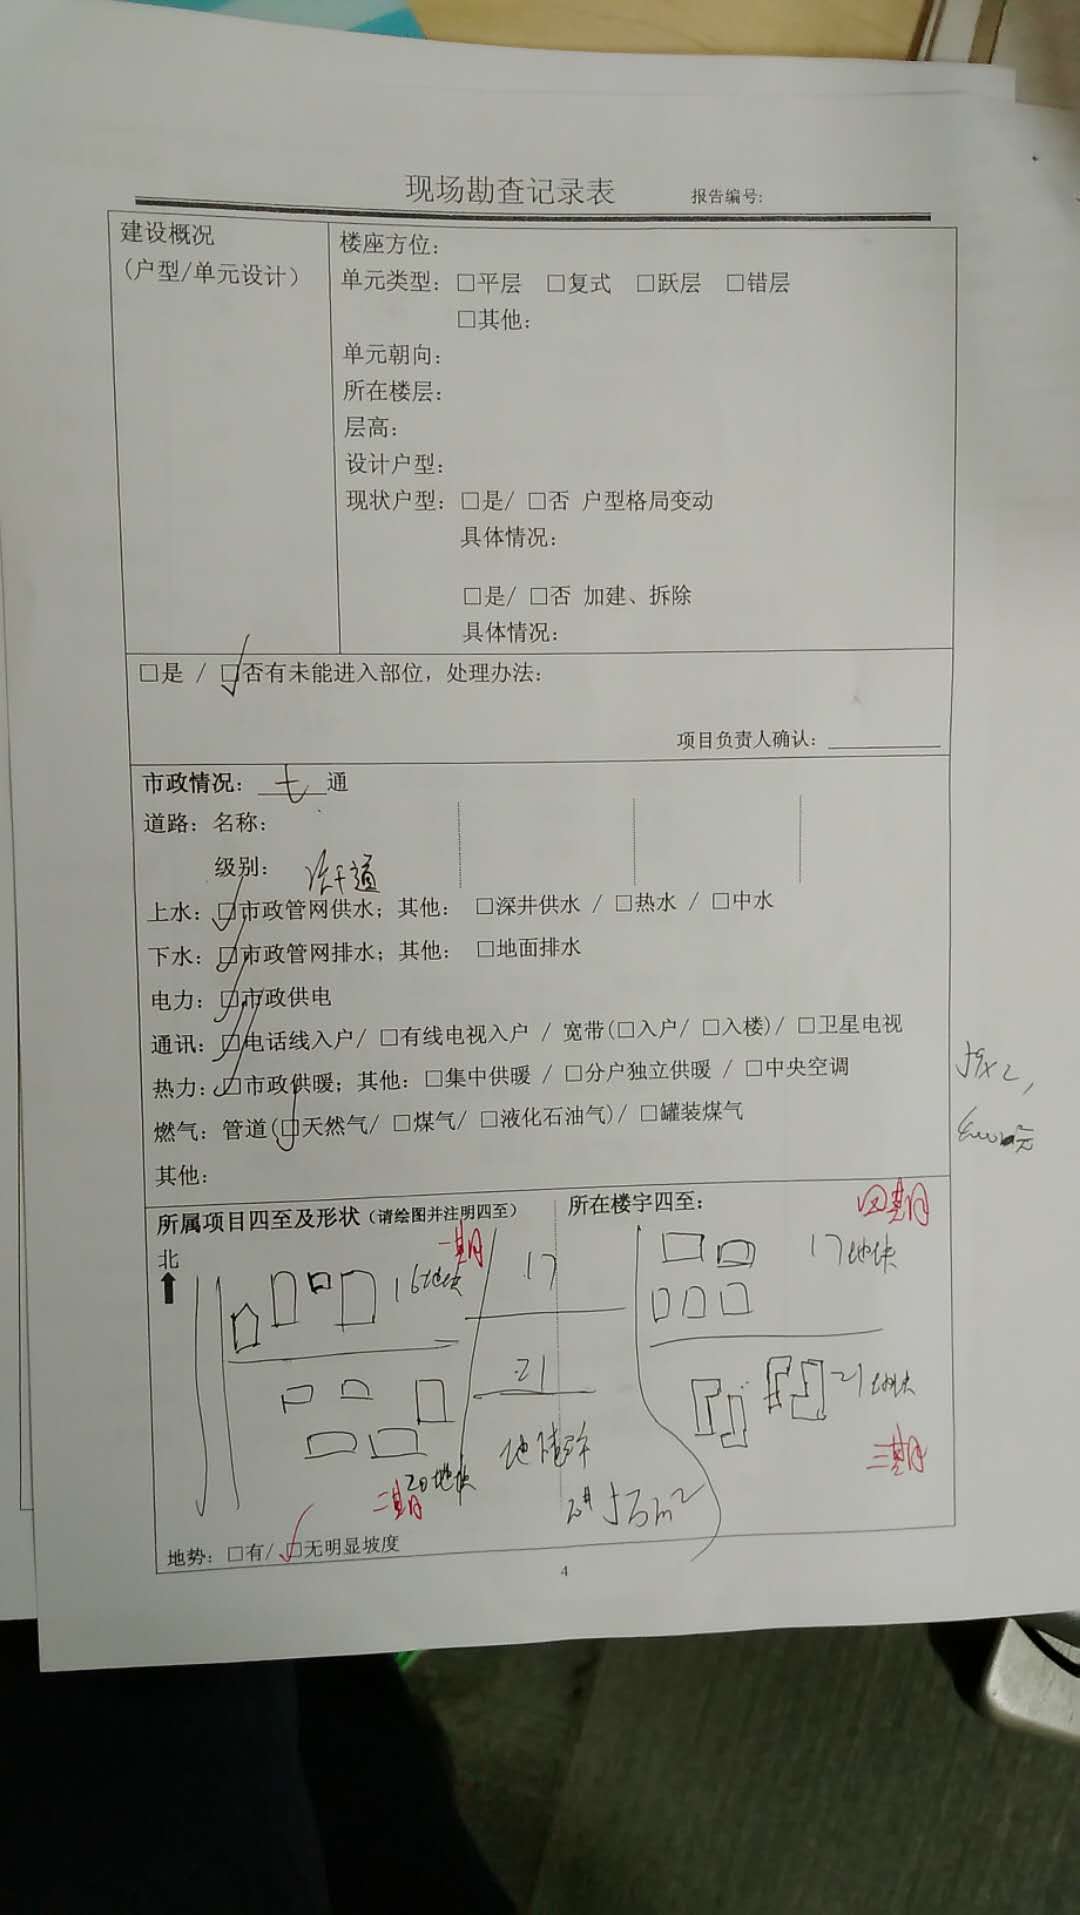 现场勘查记录表 报告编号:
建设概况
(户型/单元设计)
楼座方位:
单元类型: □平层 □复式 □跃层 □错层
□其他:
单元朝向:
所在楼层:
层高:
设计户型:
现状户型: □是/ □否 户型格局变动
具体情况:
□是/ □否 加建、拆除
具体情况:
□是 / □否有未能进入部位，处理办法:
项目负责人确认:
市政情况: 七 通
道路: 名称:
级别:
上水: □市政管网供水; 其他: □深井供水 / □热水 / □中水
下水: □市政管网排水; 其他: □地面排水
电力: □市政供电
通讯: □电话线入户/ □有线电视入户 / 宽带(□入户/ □入楼)/ □卫星电视
热力: □市政供暖; 其他: □集中供暖 / □分户独立供暖 / □中央空调
燃气: 管道(□天然气/ □煤气/ □液化石油气)/ □罐装煤气
其他:
所属项目四至及形状(请绘图并注明四至) 所在楼宇四至:
北
一期
四期
16地块
17
17地块
21
21地块
三期
20地块
二期
地势: □有/ □无明显坡度
4